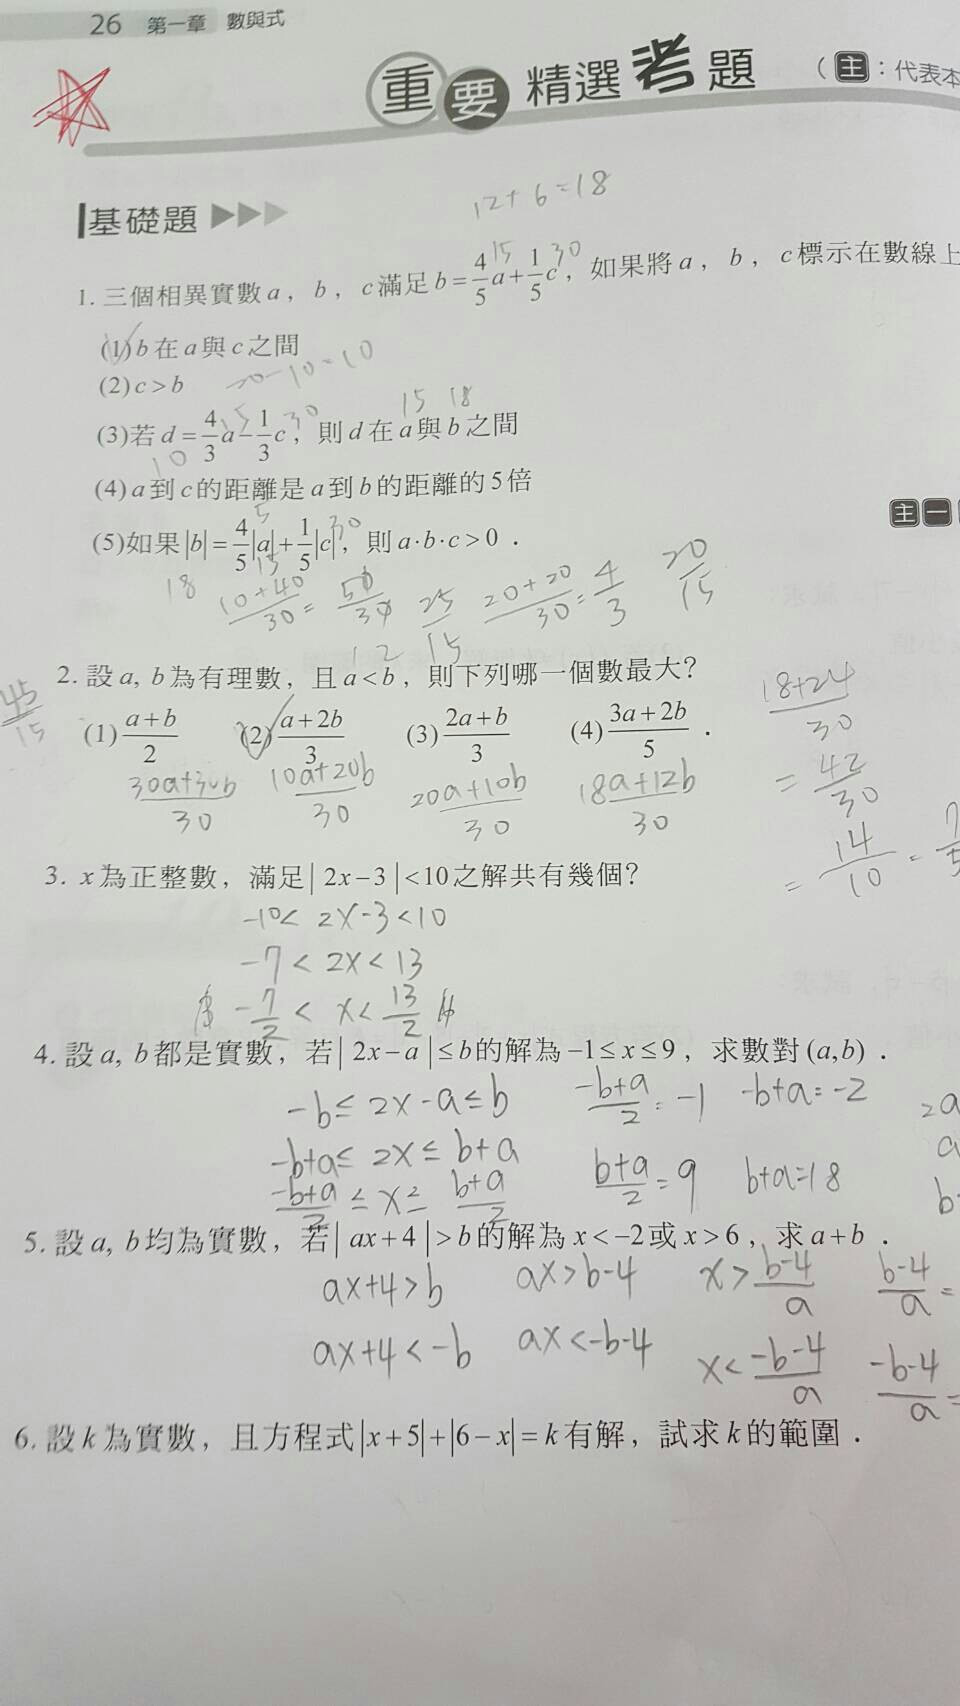 26 第一章 數與式
重要 精選考題 (主:代表本
12+6=18
基礎題
15 30
1. 三個相異實數a,b,c滿足b=4/5a+1/5c,如果將a,b,c標示在數線上
(1)b在a與c之間
(2)c>b
20-10=10
15 18
15 30
(3)若d=4/3a-1/3c,則d在a與b之間
10
(4)a到c的距離是a到b的距離的5倍
主一
(5)如果|b|=4/5|a|+1/5|c|,則a·b·c>0.
18 15 30
(10+40)/30=50/30 25/15 (20+20)/30=4/3 20/15
1 2
2. 設a, b為有理數,且a<b,則下列哪一個數最大?
45/15
(1)(a+b)/2 (2)(a+2b)/3 (3)(2a+b)/3 (4)(3a+2b)/5.
(30a+30b)/30 (10a+20b)/30 (20a+10b)/30 (18a+12b)/30
(18+24)/30
=42/30
=14/10=7/5
3. x為正整數,滿足|2x-3|<10之解共有幾個?
-10<2x-3<10
-7<2x<13
-7/2<x<13/2
4. 設a, b都是實數,若|2x-a|≤b的解為-1≤x≤9,求數對(a,b).
-b≤2x-a≤b (-b+a)/2=-1 -b+a=-2 2a
-b+a≤2x≤b+a a
(-b+a)/2≤x≤(b+a)/2 (b+a)/2=9 b+a=18 b
5. 設a, b均為實數,若|ax+4|>b的解為x<-2或x>6,求a+b.
ax+4>b ax>b-4 x>(b-4)/a (b-4)/a=
ax+4<-b ax<-b-4 x<(-b-4)/a (-b-4)/a=
6. 設k為實數,且方程式|x+5|+|6-x|=k有解,試求k的範圍.